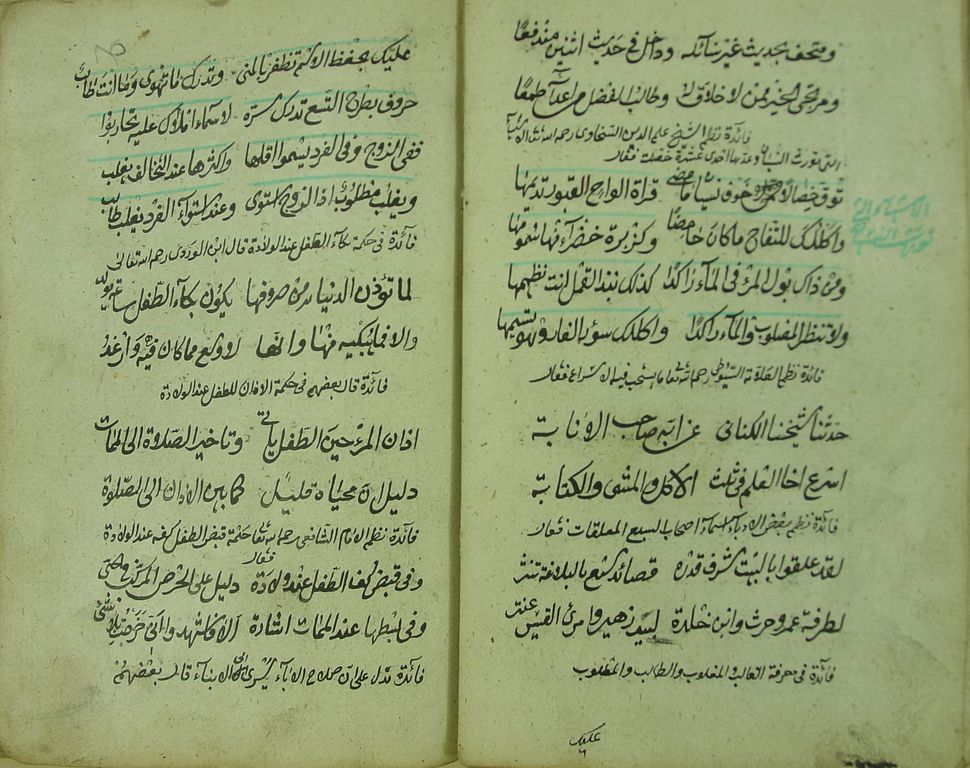 ومتحف بحديث غير سائله وداخل في حديث اثنين مندفعا
ومرتجى الخير ممن لا خلاق له وطالب الفضل من اعدائه طمعا
فائدة نظم الشيخ علم الدين السخاوي رحمه الله تعالى الاشياء
التي تورث النسيان وعدتها احدى عشرة خصلة فقال
توق خصالا خوف نسيان ما مضى قراة الواح القبور تديمها
واكلك للتفاح ما كان حامضا وكزبرة خضراء فيها سمومها
ومن ذاك بول المرء في الماء راكدا كذلك نبذ القمل لست تظيمها
ولا تنظر المصلوب والماء راكدا واكلك سؤر الفار وهو تسيمها
فائدة نظم العلامة السيوطي رحمه الله تعالى ما يستحب فيه الاسراع فقال
حدثنا شيخنا الكناني عن ابيه صاحب الانابة
اسرع اخا العلم في ثلث الاكل والمشي والكتابة
فائدة نظم بعض الادباء اسماء اصحاب السبع المعلقات فقال
لقد علقوا بالبيت شرف قدره قصائد سبع بالبلاغة تنثر
لطرفة عمرو حرث وابن خلدة لبيد زهير وامرئ القيس عنتر
فائدة في معرفة الغالب والمغلوب والطالب والمطلوب
عليك
الاشياء التي
تورث النسيان
عليك بحفظ الاسم تظفر بالمنى وتدرك ما تهوى وما انت طالب
حروف بطرح التسع تدرك سره لاسماء املاك عليه تحاربوا
ففي الزوج وفي الفرد يسموا اقلها واكثرها عند التخالف يغلب
ويغلب مطلوب اذا الزوج استوى وعند استواء الفرد يغلب طالب
فائدة في حكمة بكاء الطفل عند الولادة قال ابن الوردي رحمه الله تعالى
لما تؤذن الدنيا به من صروفها يكون بكاء الطفل ساعة يولد
والا فما يبكيه منها وانها لاوسع مما كان فيه وارغد
فائدة قال بعضهم في حكمة الاذان للطفل عند الولادة
اذان المرء حين الطفل ياتي وتاخير الصلاة الى الممات
دليل ان محياه قليل كما بين الاذان الى الصلاة
فائدة نظم الامام الشافعي رحمه الله تعالى حكمة قبض الطفل كفه عند الولادة
فقال
وفي قبض كف الطفل عند ولادة دليل على الحرص المركب في الحي
وفي بسطها عند الممات اشارة الا فاشهدوا اني خرجت بلا شي
فائدة تدل على ان صلاح الاباء يسري الى الابناء قال بعضهم